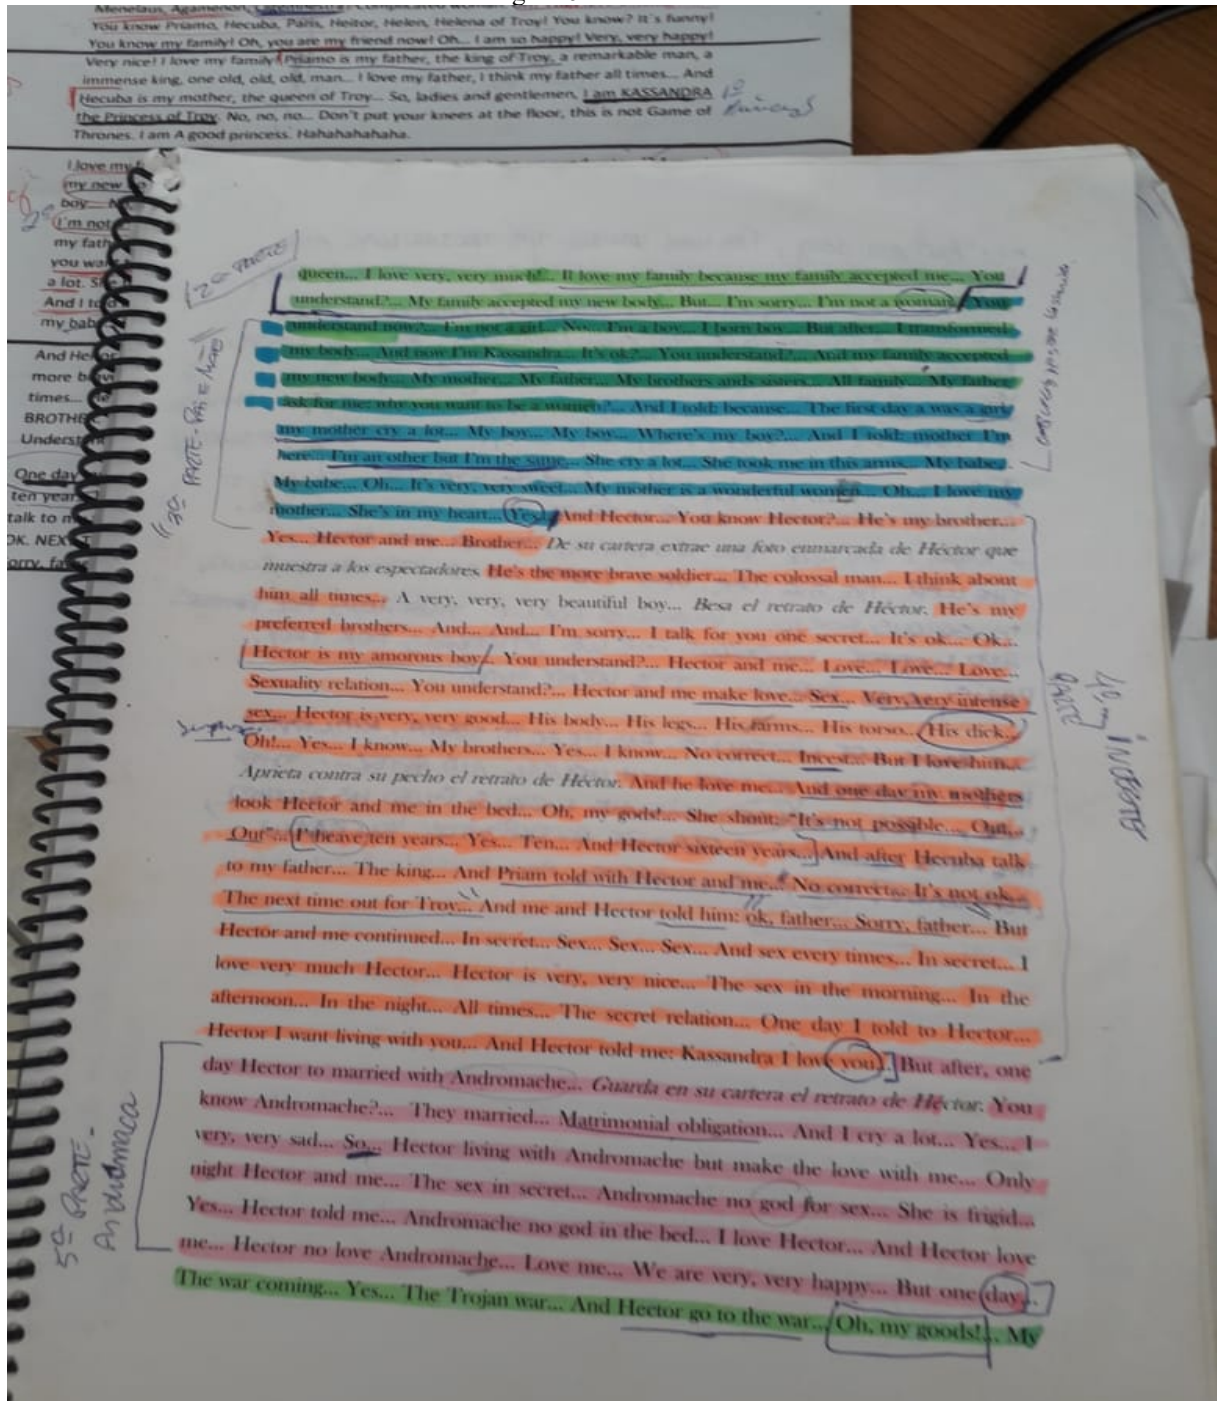 Menelaus, Agamenon,
You know Priamo, Hecuba, Paris, Heitor, Helen, Helena of Troy! You know? It's funny!
You know my family! Oh, you are my friend now! Oh... I am so happy! Very, very happy!
Very nice! I love my family! Priamo is my father, the king of Troy, a remarkable man, a
immense king, one old, old, old, man... I love my father, I think my father all times... And
Hecuba is my mother, the queen of Troy... So, ladies and gentlemen, I am KASSANDRA
the Princess of Troy. No, no, no... Don't put your knees at the floor, this is not Game of
Thrones. I am A good princess. Hahahahahaha.
I love my
my new
boy
I'm not
my fath
you wa
a lot. S
And I to
my bab
And He
more b
times...
BROTHE
Underst
One day
ten year
talk to m
OK. NEXT
orry, fa
2ª PARTE
queen... I love very, very much!... Il love my family because my family accepted me... You
understand?... My family accepted my new body... But... I'm sorry... I'm not a woman. You
understand now?... I'm not a girl... No... I'm a boy... I born boy... But after... I transformed
my body... And now I'm Kassandra... It's ok?... You understand?... And my family accepted
my new body... My mother... My father... My brothers ands sisters... All family... My father
ask for me: why you want to be a women?... And I told: because... The first day a was a girl,
my mother cry a lot... My boy... My boy... Where's my boy?... And I told: mother I'm
here... I'm an other but I'm the same... She cry a lot... She took me in this arms... My babe.
My babe... Oh... It's very, very sweet... My mother is a wonderful women... Oh... I love my
mother... She's in my heart... Yes. And Hector... You know Hector?... He's my brother...
Yes... Hector and me... Brother... De su cartera extrae una foto enmarcada de Héctor que
muestra a los espectadores. He's the more brave soldier... The colossal man... I think about
him all times... A very, very, very beautiful boy... Besa el retrato de Héctor. He's my
preferred brothers... And... And... I'm sorry... I talk for you one secret... It's ok... Ok...
Hector is my amorous boy... You understand?... Hector and me... Love... Love... Love...
Sexuality relation... You understand?... Hector and me make love... Sex... Very, very intense
sex... Hector is very, very good... His body... His legs... His farms... His torso... His dick...
Oh!... Yes... I know... My brothers... Yes... I know... No correct... Incest... But I love him...
Aprieta contra su pecho el retrato de Héctor. And he love me... And one day my mothers
look Hector and me in the bed... Oh, my gods!... She shout: "It's not possible... Out...
Out"... I heave ten years... Yes... Ten... And Hector sixteen years... And after Hecuba talk
to my father... The king... And Priam told with Hector and me... No correct... It's not ok...
The next time out for Troy... And me and Hector told him: ok, father... Sorry, father... But
Hector and me continued... In secret... Sex... Sex... Sex... And sex every times... In secret... I
love very much Hector... Hector is very, very nice... The sex in the morning... In the
afternoon... In the night... All times... The secret relation... One day I told to Hector...
Hector I want living with you... And Hector told me: Kassandra I love you... But after, one
day Hector to married with Andromache... Guarda en su cartera el retrato de Héctor. You
know Andromache?... They married... Matrimonial obligation... And I cry a lot... Yes... I
very, very sad... So... Hector living with Andromache but make the love with me... Only
night Hector and me... The sex in secret... Andromache no god for sex... She is frigid...
Yes... Hector told me... Andromache no god in the bed... I love Hector... And Hector love
me... Hector no love Andromache... Love me... We are very, very happy... But one day...
The war coming... Yes... The Trojan war... And Hector go to the war... Oh, my goods!... My
3ª PARTE - PAI E MÃE
5ª PARTE -
Andrômaca